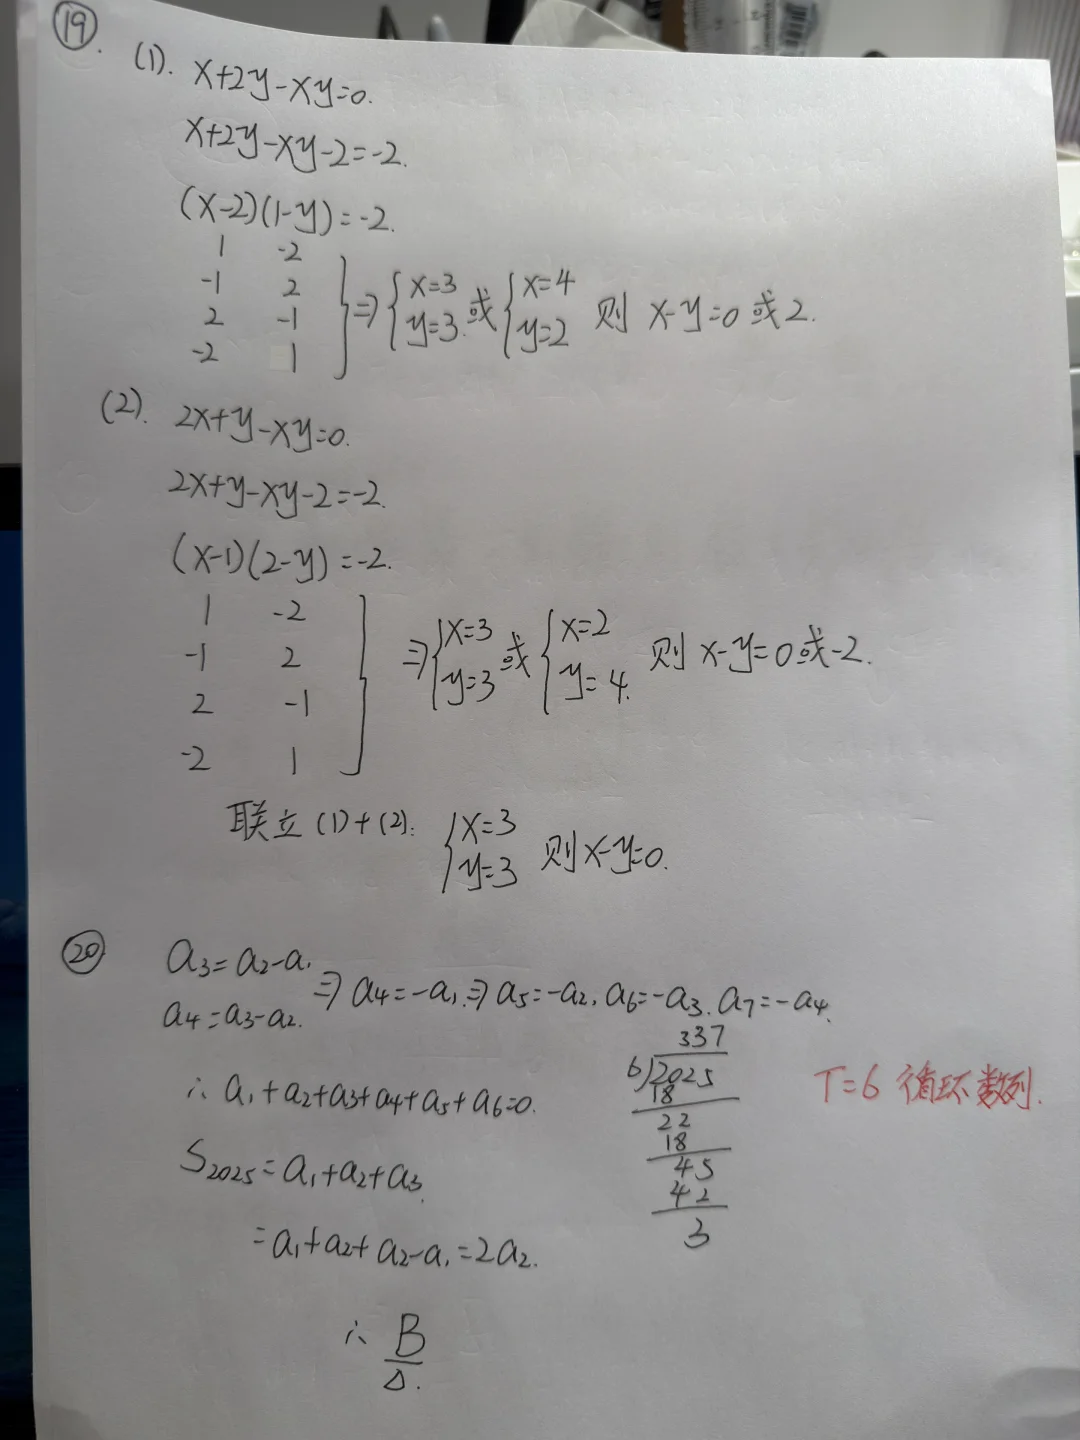 ⑲
(1). x+2y-xy=0.
x+2y-xy-2=-2.
(x-2)(1-y)=-2.
1 -2
-1 2
2 -1
-2 1
} ⇒ { x=3 y=3. 或 { x=4 y=2 则 x-y=0 或 2.
(2). 2x+y-xy=0.
2x+y-xy-2=-2.
(x-1)(2-y)=-2.
1 -2
-1 2
2 -1
-2 1
} ⇒ { x=3 y=3 或 { x=2 y=4. 则 x-y=0 或-2.
联立 (1)+(2): { x=3 y=3 则 x-y=0.
⑳
a₃=a₂-a₁
a₄=a₃-a₂.
⇒ a₄=-a₁.⇒ a₅=-a₂, a₆=-a₃. a₇=-a₄.
∴ a₁+a₂+a₃+a₄+a₅+a₆=0.
S₂₀₂₅=a₁+a₂+a₃.
=a₁+a₂+a₂-a₁=2a₂.
∴ B
Δ.
337
6)2025
18
22
18
45
42
3
T=6 循环数列.